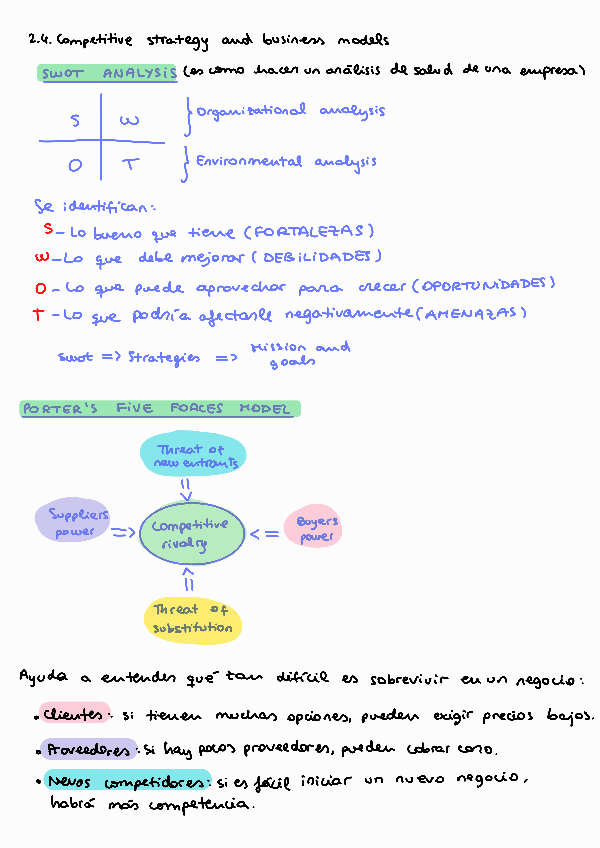 2.4. Competitive strategy and business models
SWOT ANALYSIS (es como hacer un análisis de salud de una empresa)
S W } Organizational analysis
O T } Environmental analysis
Se identifican:
S - Lo bueno que tiene (FORTALEZAS)
W - Lo que debe mejorar (DEBILIDADES)
O - Lo que puede aprovechar para crecer (OPORTUNIDADES)
T - Lo que podría afectarle negativamente (AMENAZAS)
Swot => Strategies => Mission and
goals
PORTER'S FIVE FORCES MODEL
Threat of
new entrants
Suppliers
power
=>
Competitive
rivalry
<=
Buyers
power
Threat of
substitution
Ayuda a entender qué tan difícil es sobrevivir en un negocio:
• Clientes: si tienen muchas opciones, pueden exigir precios bajos.
• Proveedores: si hay pocos proveedores, pueden cobrar caro.
• Nevos competidores: si es fácil iniciar un nuevo negocio,
habrá más competencia.